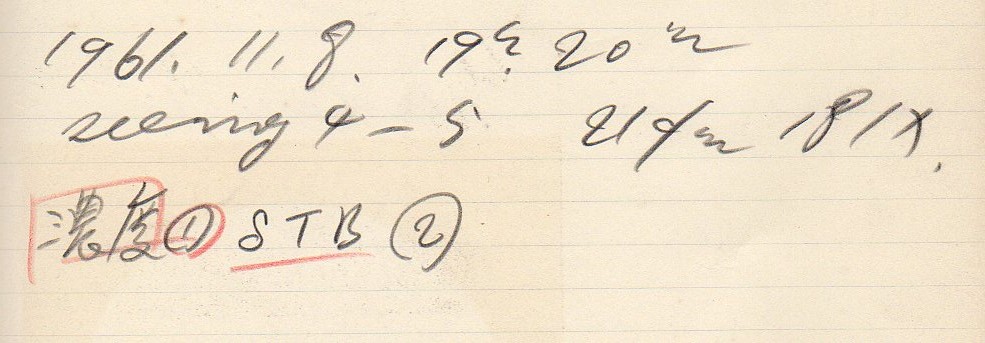 1961. 11. 8. 19h 20m
seeing 4-5 21cm 181X.
濃度① STB ②